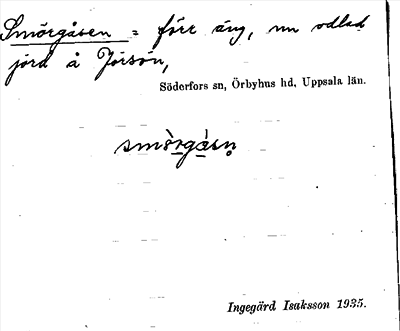 Smörgåsen = förr äng, nu odlad
jord å Jörsön,
Söderfors sn, Örbyhus hd, Uppsala län.
smö̀rgásn̥
Ingegärd Isaksson 1935.